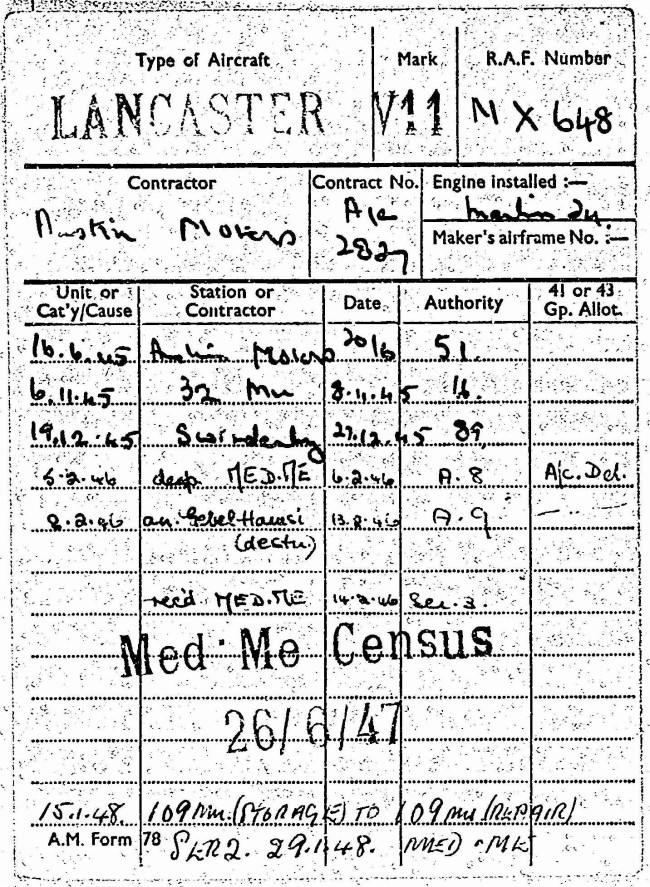 Type of Aircraft Mark R.A.F. Number
LANCASTER V11 MX648
Contractor Contract No. Engine installed :—
Austin Motors A/c 2827 Merlin 24.
Maker's airframe No. :—
Unit or Cat'y/Cause Station or Contractor Date Authority 41 or 43 Gp. Allot.
16.6.45 Austin Motors 20/6 51.
6.11.45 32 Mu 8.11.45 16.
19.12.45 Swinderby 27.12.45 89,
5.2.46 desp. MED.ME 6.2.46 A.8 A/c. Del.
8.2.46 arr. Gebel Hamsi 13.2.46 A.9 — .. —
(destn.)
recd. MED.ME 14.2.46 Ser.3.
Med. Me Census
26/6/47
15.1.48. 109 mu. (STORAGE) TO 109 mu (REPAIR)
A.M. Form 78 29.1.48. MED.ME